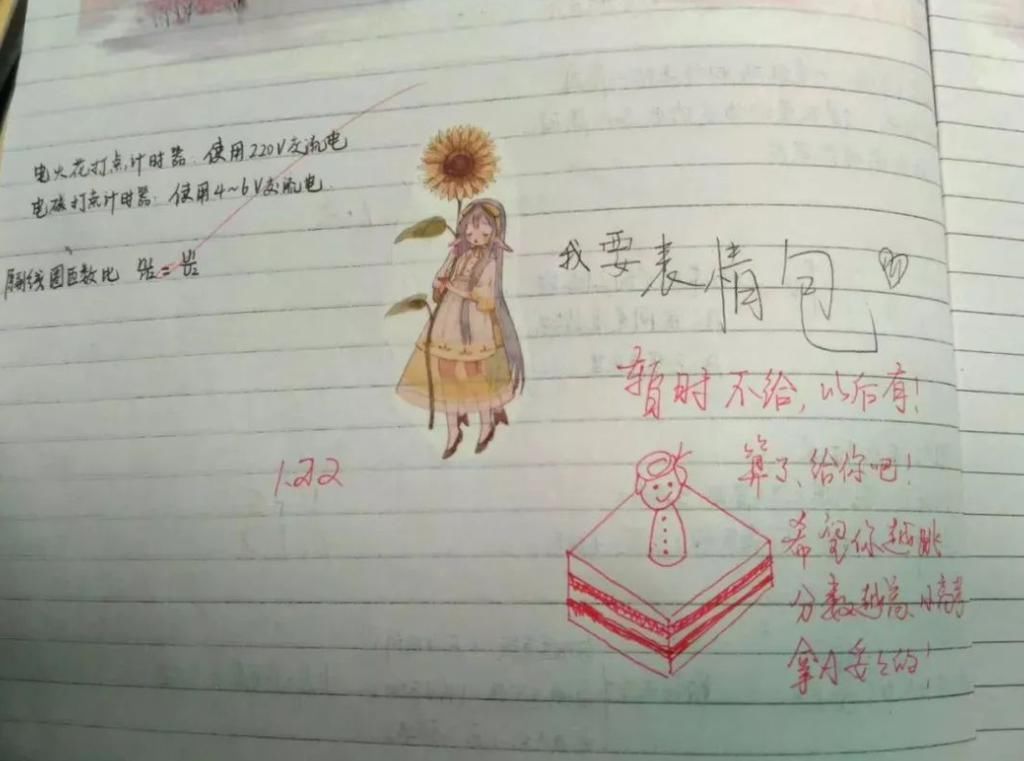 电火花打点计时器:使用220V交流电
电磁打点计时器:使用4~6V交流电
线圈匝数比
我要表情包
暂时不给,以后有!
1.22
算了、给你吧!
希望你越跳
分数越高、小高考
拿A妥妥的!